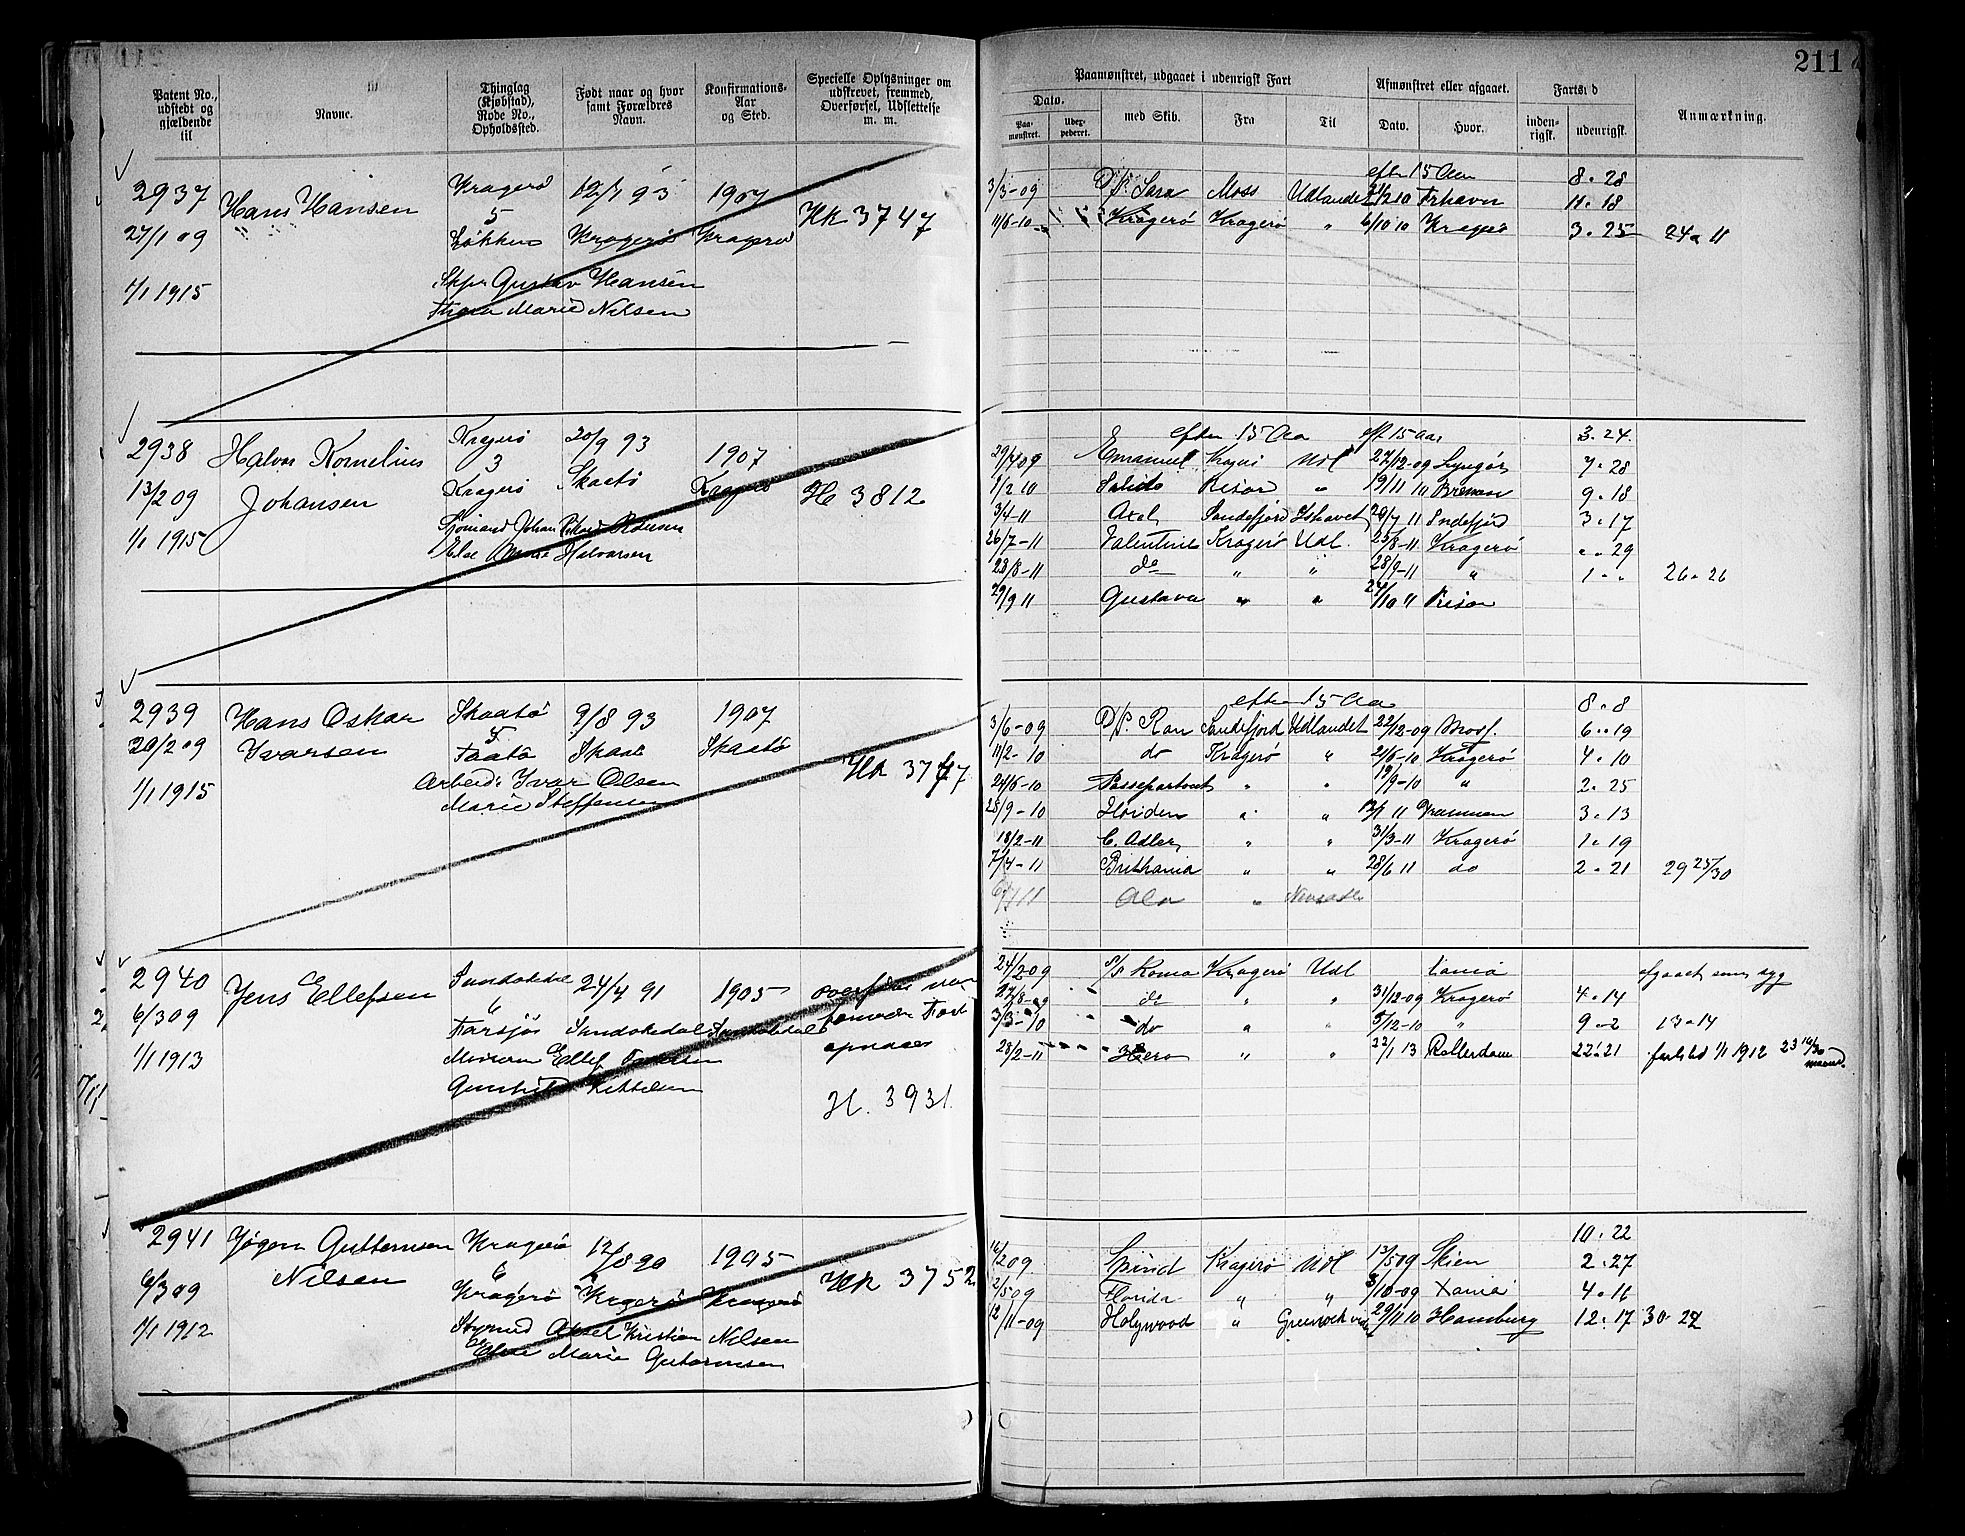 211
Patent No., udstedt og gjældende til
Navne.
Thinglag (Kjøbstad), Rode No., Opholdssted.
Født naar og hvor samt Forældres Navn.
Konfirmations-Aar og Sted.
Specielle Oplysninger om udskrevet, fremmed, Overførsel, Udslettelse m. m.
Paamønstret, udgaaet i udenrigsk Fart
Afmønstret eller afgaaet.
Fartstid
Anmærkning.
Dato.
Paa-mønstret.
Udex-pederet.
med Skib.
Fra
Til
Dato.
Hvor.
inden-rigsk.
udenrigsk.
2937 Hans Hansen Kragerø 12/7 93 1907 Hk 3747
27/1 09 5
Løkken Kragerø Kragerø
1/1 1915 Skpr Gustav Hansen
Marie Nilsen
efter 15 Aar 8 . 28
3/3-09 D/S. Sara Moss Udlandet 21/12 10 Frhavn 11 . 18
11/6-10 Kragerø Kragerø " 6/10 10 Kragerø 3 . 25 24 " 11
2938 Halvor Kornelius Kragerø 20/9 93 1907
13/2 09 Johansen 3 Skaatø
Kragerø Kragerø H 3812
1/1 1915 Sjømand Johan
Else Marie Halvorsen
efter 15 Aar eft 15 Aar 3 . 24
29/4 09 Emanuel Kragerø Udl 27/12-09 Lyngør 7 . 28
1/2 10 Risør " 19/11 10 Bremen 9 . 18
3/4-11 Axel Sandefjord Ishavet 20/7 11 Sndefjord 3 . 17
26/7-11 Valentine Kragerø Udl. 25/8-11 Kragerø " . 29
28/8-11 do " " 28/9-11 " 1 . " 26 . 26
29/9 11 Gustava " " 24/10 11 Risør
2939 Hans Oskar Skaatø 9/8 93 1907
20/2 09 Ivarsen 4
Taatø Skaatø Skaatø
Hk 3767
1/1 1915 Arbeid. Ivar Olsen
Marie Steffensen
efter 15 Aar 8 . 8
3/6-09 D/S. Ran Sandefjord Udlandet 22/12-09 6 . 19
11/2-10 do Kragerø " 21/6-10 Kragerø 4 . 10
24/6-10 Passepartout " " 19/9-10 " 2 . 25
28/9-10 Hoiden " " 12/1 11 Drammen 3 . 13
18/2-11 C. Adler " " 31/3-11 Kragerø 1 . 19
7/4-11 Brithania " " 28/6 11 do 2 . 21 29 25/30
"
2940 Jens Ellefsen 24/4 91 1905
6/3 09 6
Farsjø
1/1 1913 Ellef
Gunhild Kittelsen
H. 3931
24/2 09 S/S Roma Kragerø Udl Xania afgaaet som syg
27/8-09 do " " 31/12-09 Kragerø 4 . 14
3/3-10 do " " 5/12-10 " 9 . 2 13 . 14
28/2-11 Hero " " 22/1 13 Rotterdam 22 . 21 fartstid 1/1 1912 23 16/30 maaned.
2941 Jøgen Guttormsen Kragerø 12/8 90 1905
6/3 09 Nilsen 6 Hk 3752
Kragerø Kragerø Kragerø
1/1 1912 Styrmd Aksel Kristian Nilsen
Marie Gutormsen
10 . 22
16/2 09 Spind Kragerø Udl 13/5 09 Skien 2 . 27
2/5 09 Florida " " 3/10-09 Xania 4 . 16
12/11-09 Holywood " Greenock 29/11 10 Hamburg 12 . 17 30 . 22